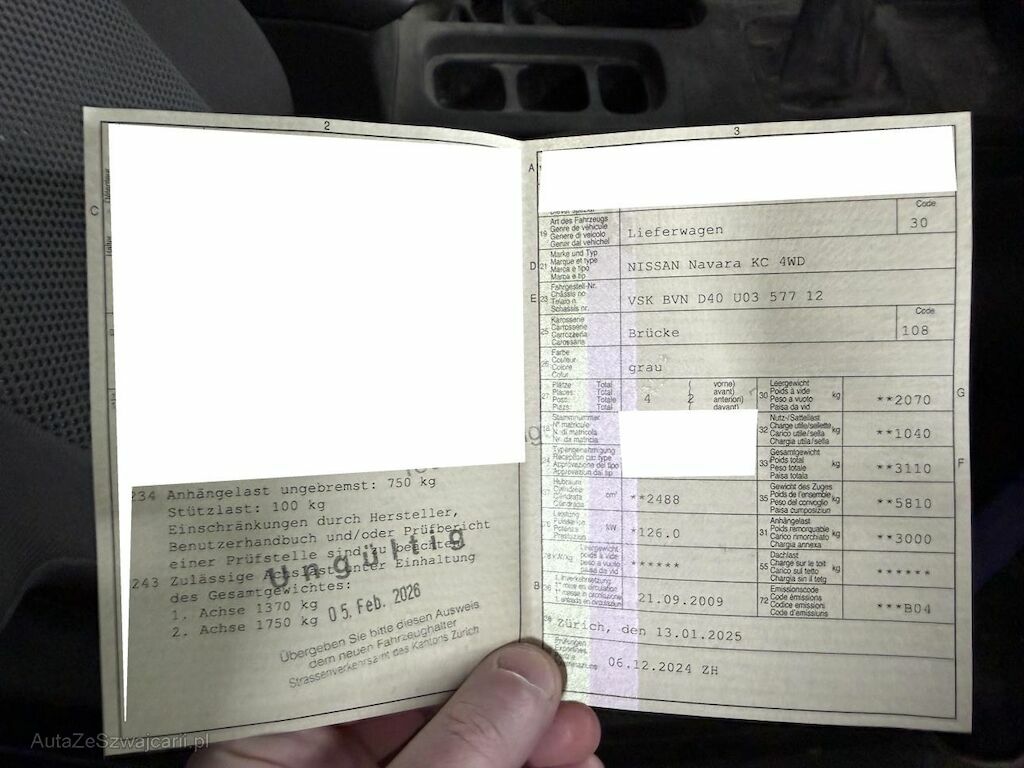 2
C
234 Anhängelast ungebremst: 750 kg
Stützlast: 100 kg
Einschränkungen durch Hersteller,
Benutzerhandbuch und/oder Prüfbericht
einer Prüfstelle sind zu beachten
243 Zulässige unter Einhaltung
des Gesamtgewichtes:
1. Achse 1370 kg
2. Achse 1750 kg
Ungültig
05. Feb. 2026
Übergeben Sie bitte diesen Ausweis
dem neuen Fahrzeughalter
Strassenverkehrsamt des Kantons Zürich
3
A
19 Art des Fahrzeugs
Genre de véhicule
Genere di veicolo
Gener dal vehichel
Lieferwagen
Code
30
D 21 Marke und Typ
Marque et type
Marca e tipo
Marca e tip
NISSAN Navara KC 4WD
E 23 Fahrgestell-Nr.
Châssis no
Telaio n.
Schassis nr.
VSK BVN D40 U03 577 12
25 Karosserie
Carrosserie
Carrozzeria
Carossaria
Brücke
Code
108
26 Farbe
Couleur
Colore
Colur
grau
27 Plätze Total
Places: Total
Posti: Totale
Plazs: Total
4 ( 2 vorne)
avant)
anteriori)
davant)
30 Leergewicht
Poids à vide
Peso a vuoto
Paisa da vid
kg
**2070
G
18 Stammnummer
N° matricule
N. di matricola
Nr. da matricla
32 Nutz-/Sattellast
Charge utile/sellette
Carico utile/sella
Chargia utila/sella
kg
**1040
24 Typengenehmigung
Réception par type
Approvazione del tipo
Approvaziun dal tip
33 Gesamtgewicht
Poids total
Peso totale
Paisa totala
kg
**3110
F
37 Hubraum
Cylindrée
Cilindrata
Cilindrada
cm³
**2488
35 Gewicht des Zuges
Poids de l'ensemble
Peso del convoglio
Paisa cumposiziun
kg
**5810
76 Leistung
Puissance
Potenza
Prestaziun
kW
*126.0
31 Anhängelast
Poids remorquable
Carico rimorchiato
Chargia annexa
kg
**3000
78 kW/kg Leergewicht
poids à vide
peso a vuoto
paisa da vid
******
55 Dachlast
Charge sur le toit
Carico sul tetto
Chargia sin il tetg
kg
******
B 36 1. Inverkehrsetzung
21.09.2009
72 Emissionscode
Code émissions
Codice emissioni
Code d'emissiuns
***B04
Zürich, den 13.01.2025
06.12.2024 ZH
AutaZeSzwajcarii.pl